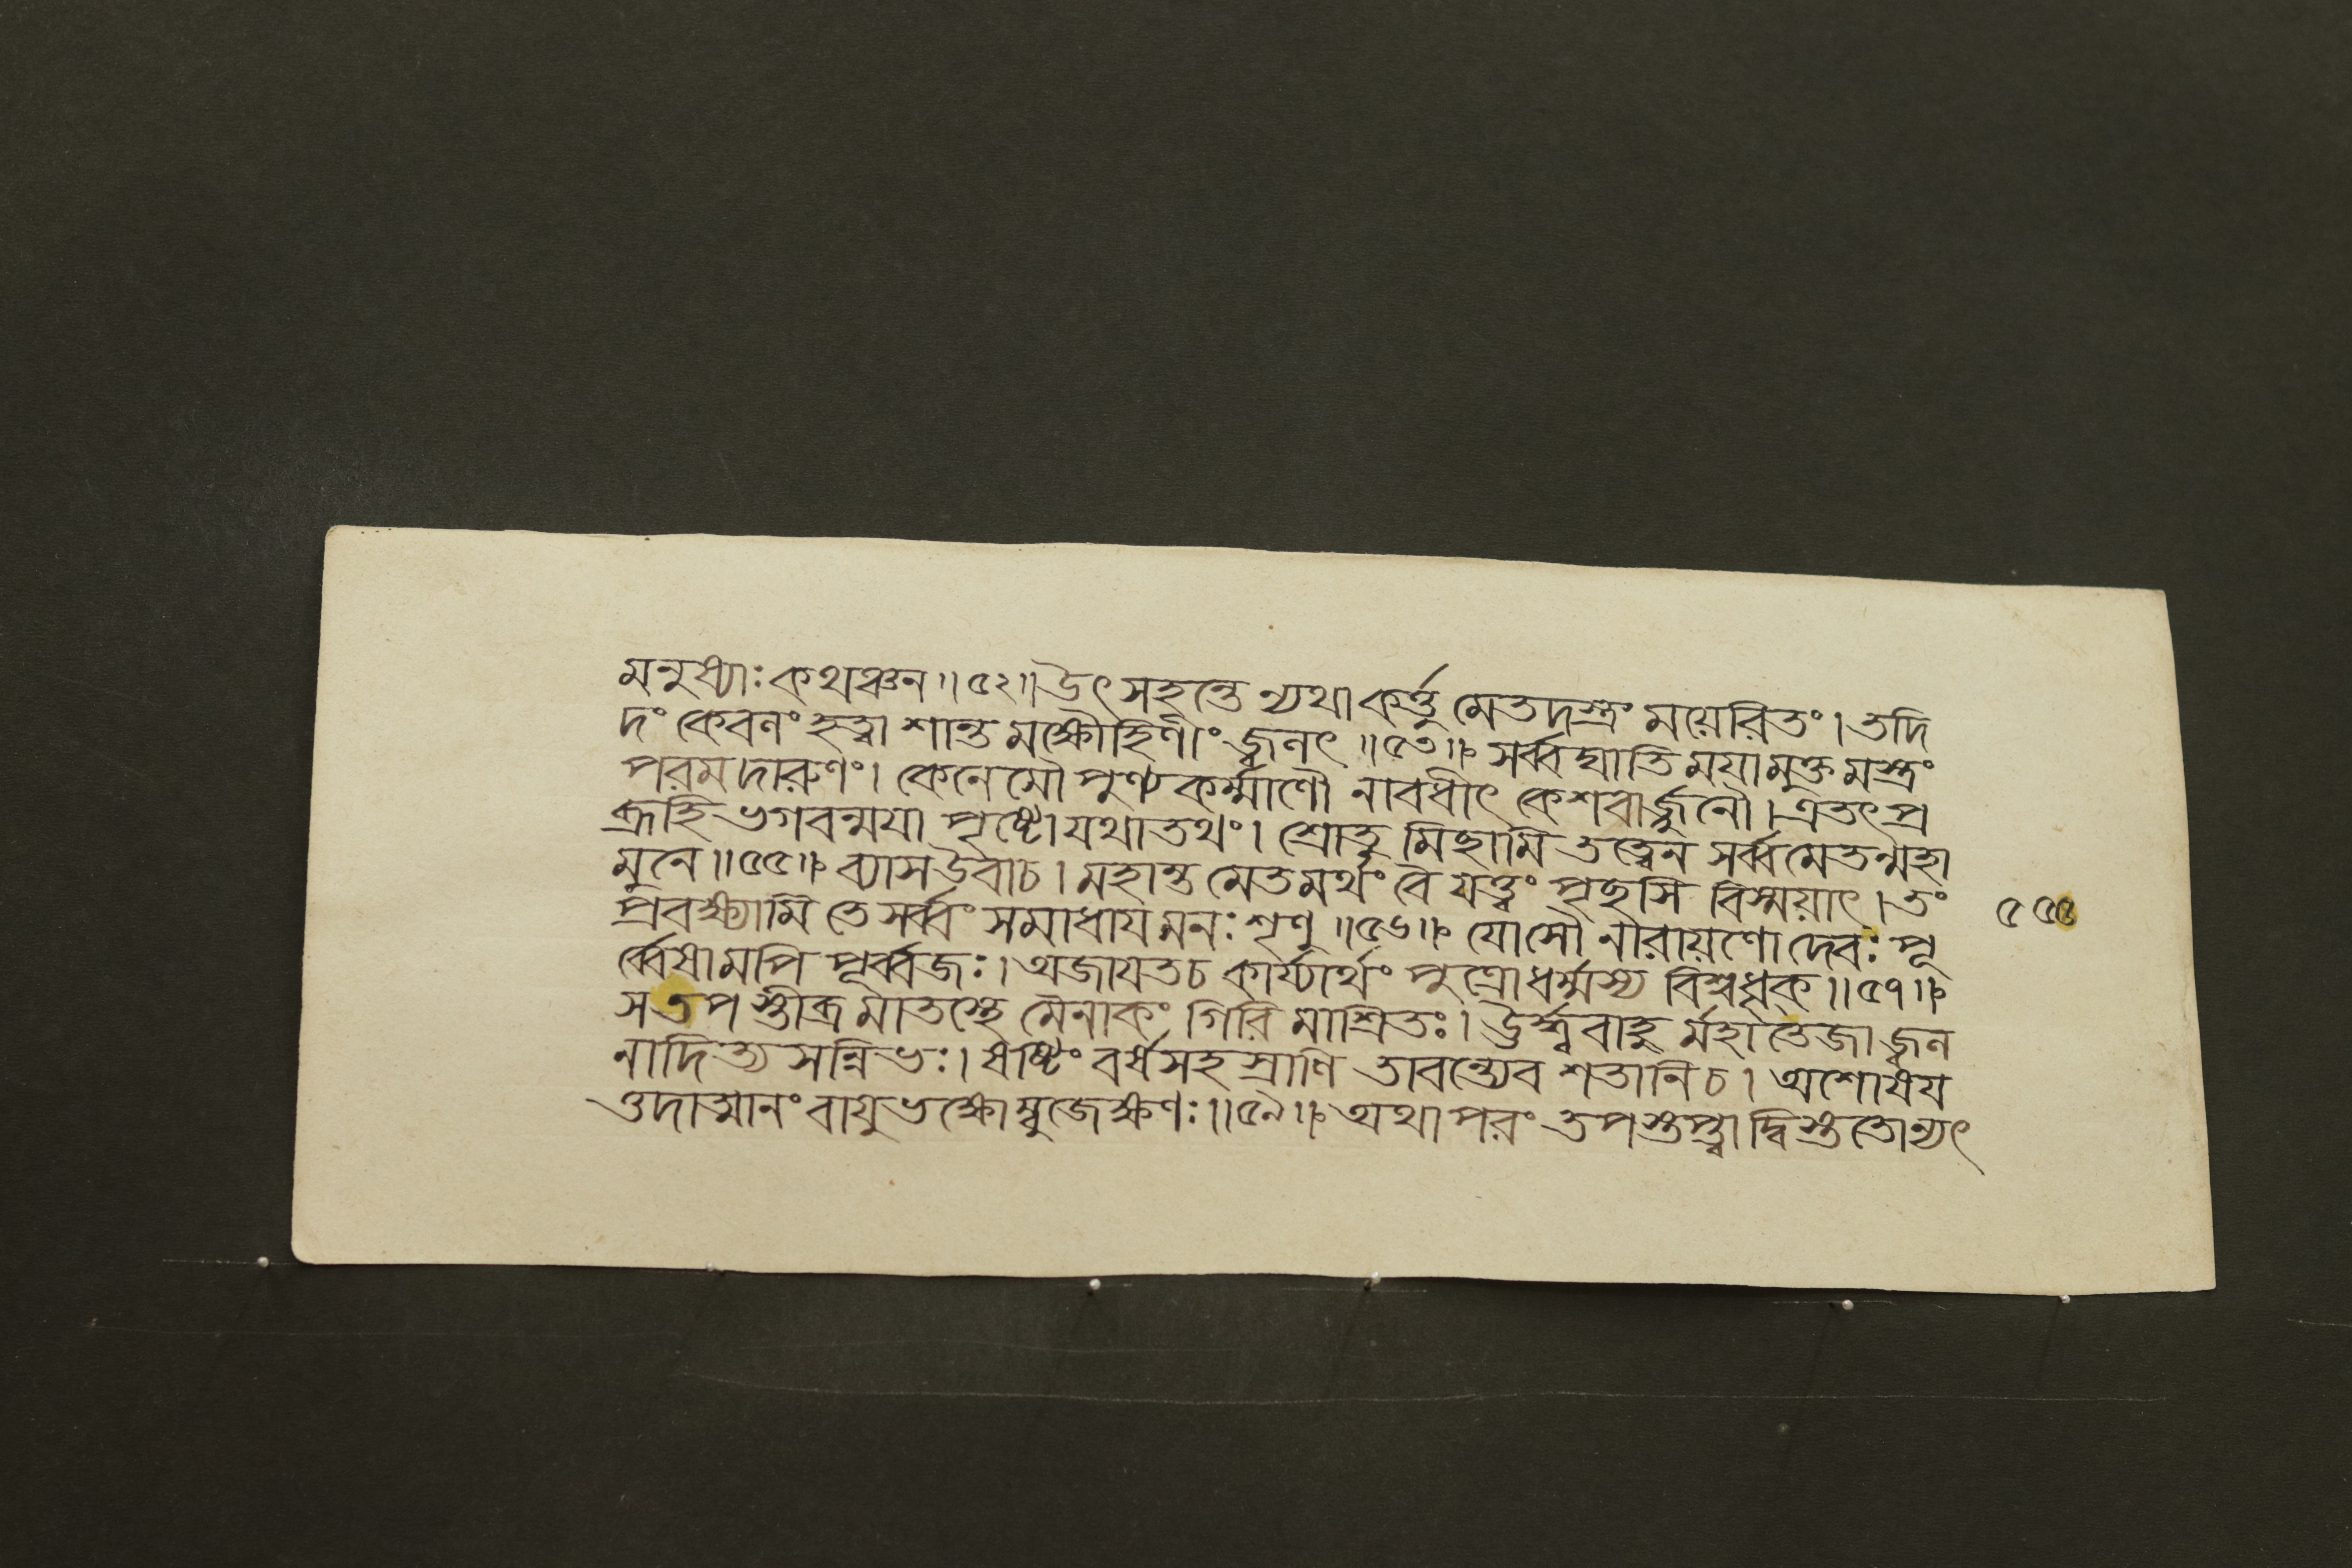 মনুষ্যাঃ কথঞ্চন ॥ ৫২ ॥ উৎসহন্তে ন্যথা কর্ত্তু মেতদস্ত্রং ময়েরিতং । তদি
দং কেবলং হত্বা শান্ত মক্ষৌহিণীং জ্বলৎ ॥ ৫৩ ॥ সর্ব্বঘাতি ময়ামুক্ত মস্ত্রং
পরমদারুণং । কেনেমৌ পুণ্যকর্ম্মাণৌ নাবধীৎ কেশবার্জ্জুনৌ । এতৎ প্র
ব্রূহি ভগবন্ময়া পৃষ্টো যথাতথং । শ্রোতু মিছামি তত্ত্বেন সর্ব্বমেতন্মহা
মুনে ॥ ৫৫ ॥ ব্যাসউবাচ । মহান্ত মেতমর্থং বৈ যত্ত্বং পৃছসি বিস্ময়াৎ । তং
প্রবক্ষ্যামি তে সর্ব্বং সমাধায় মনঃ শৃণু ॥ ৫৬ ॥ যোসৌ নারায়ণো দেবঃ পূ
র্ব্বেষামপি পূর্ব্বজঃ । অজায়তচ কার্য্যার্থং পুত্রোধর্ম্মস্য বিশ্বধৃক্ ॥ ৫৭ ॥
স তপস্তীব্রমাতস্থে মৈনাকং গিরি মাশ্রিতঃ । উর্দ্ধ্ববাহু র্মহাতেজা জ্বল
নাদিত্য সন্নিভঃ । ষষ্টিং বর্ষসহস্রাণি তাবন্ত্যেব শতানিচ । অশোষয
ত্তদাত্মানং বায়ুভক্ষোম্বুজেক্ষণঃ ॥ ৫৯ ॥ অথাপরং তপস্তপ্ত্বা দ্বিস্ততোন্যৎ